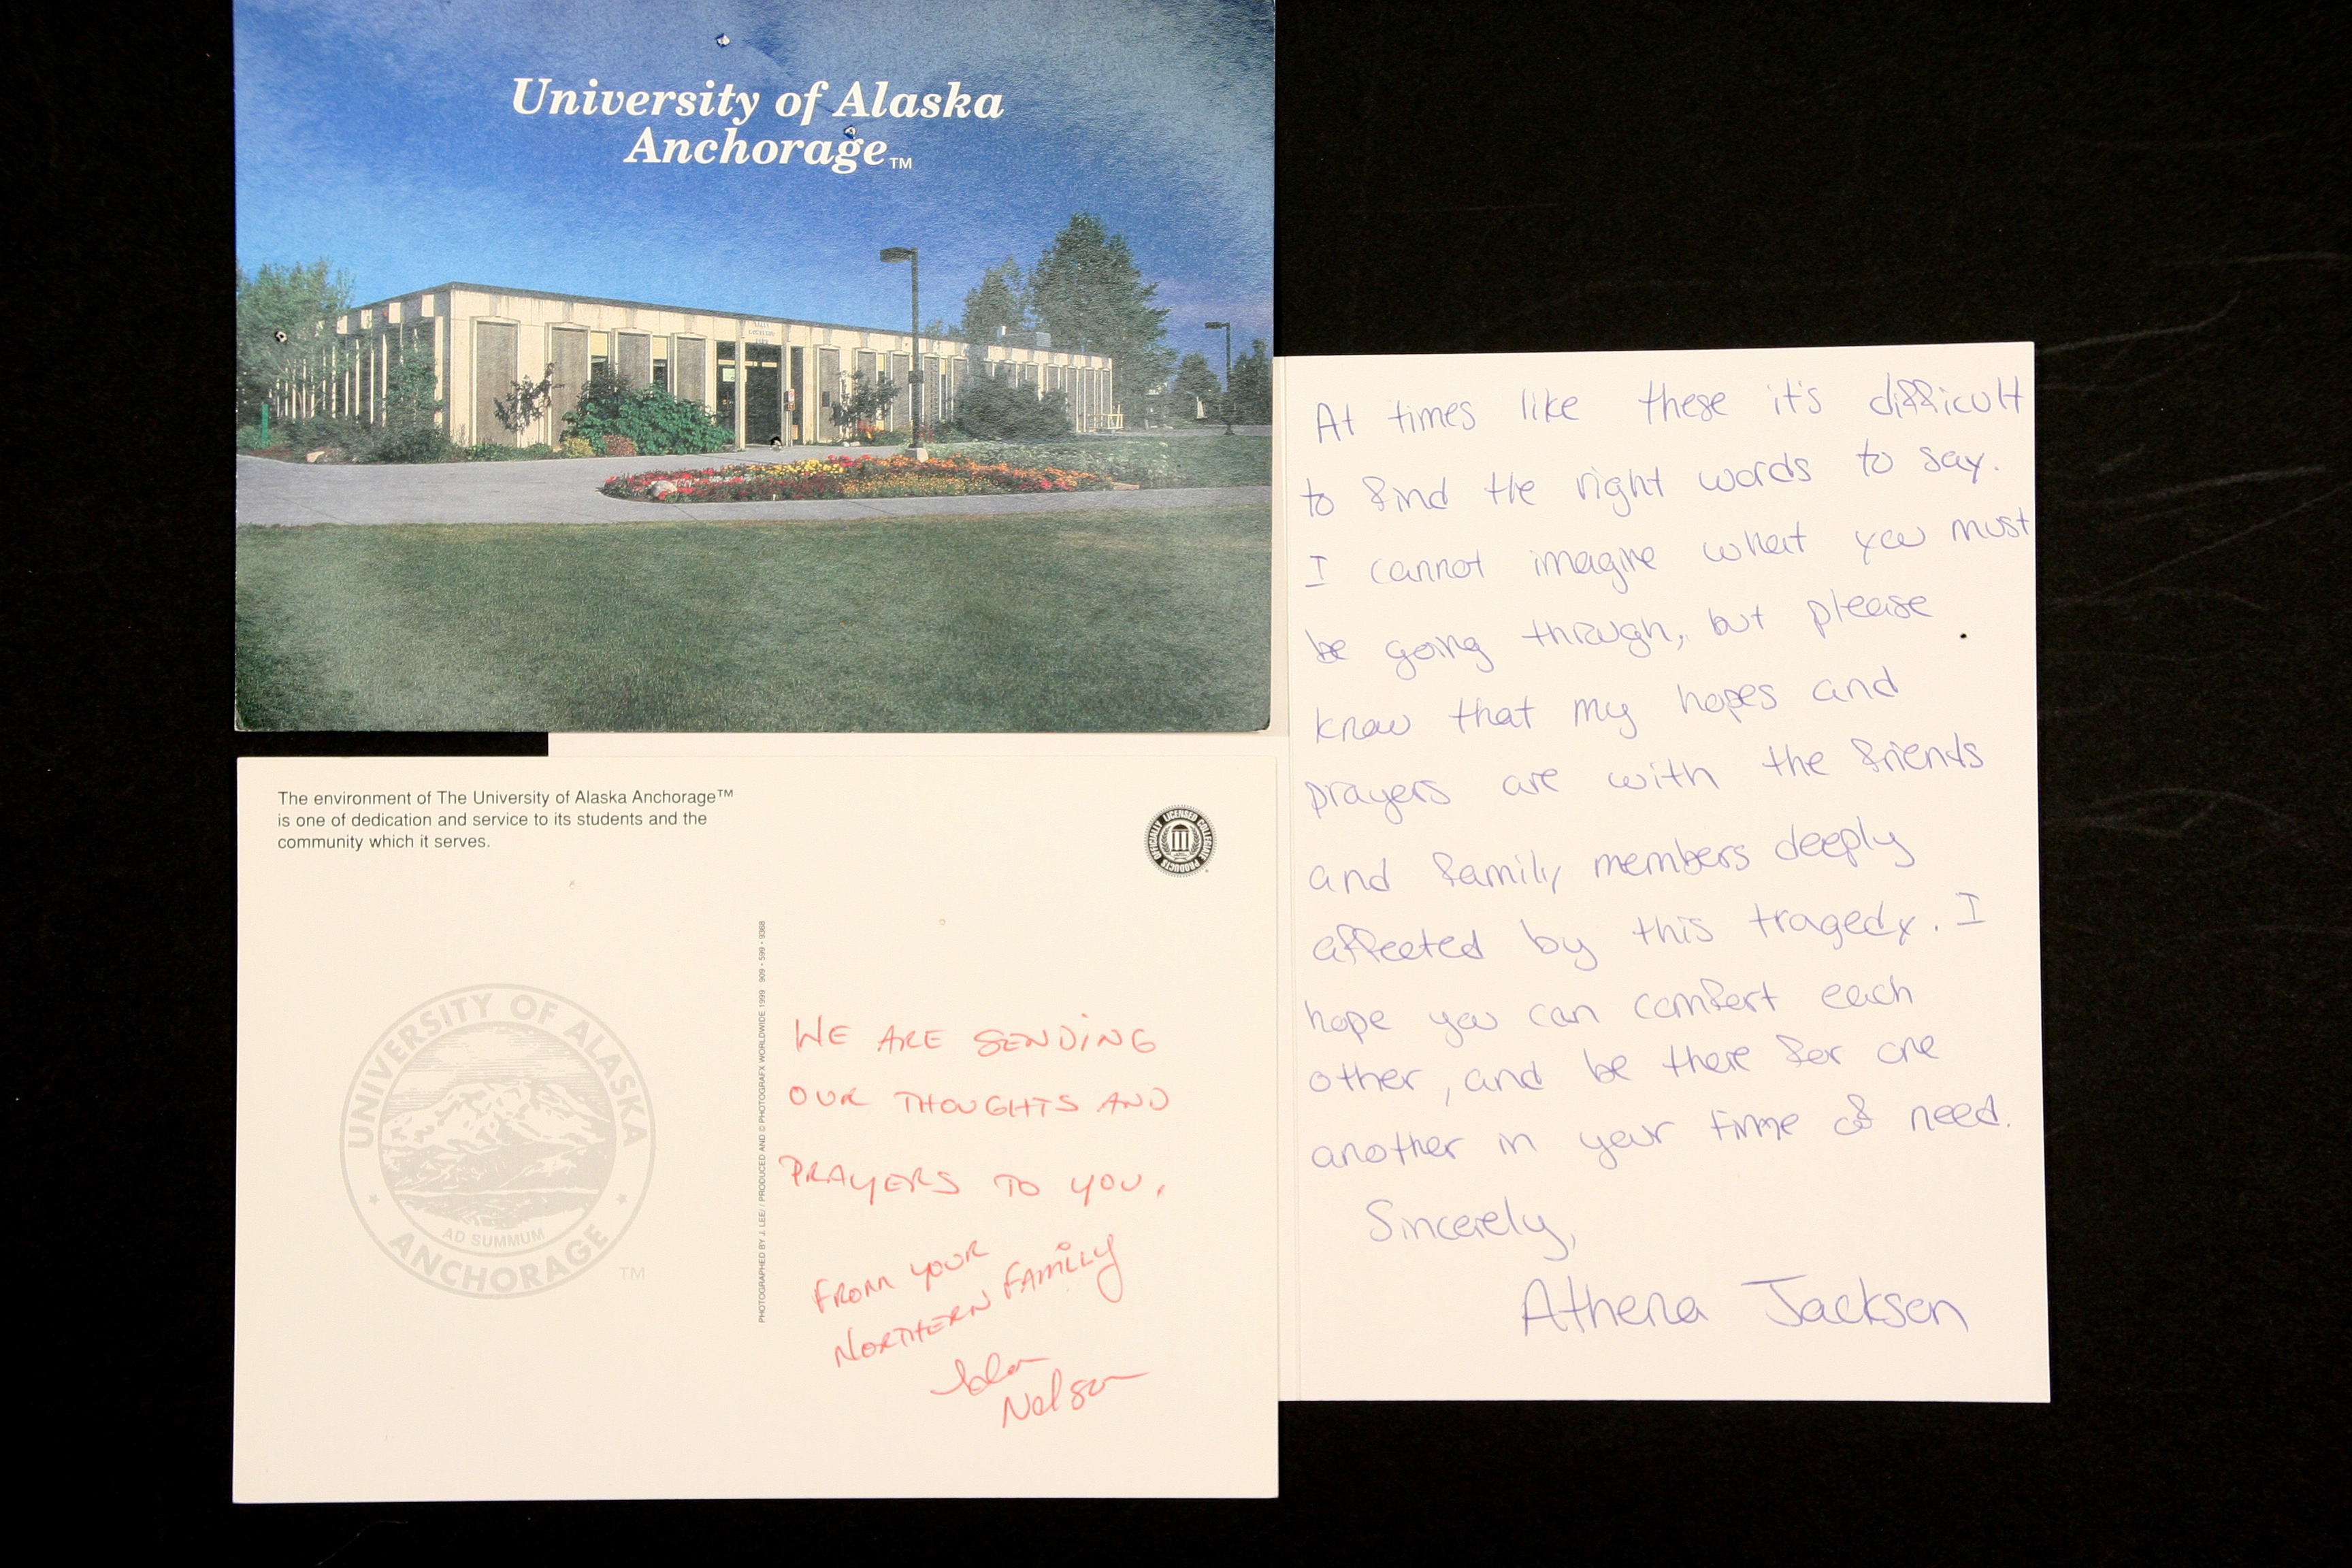 University of Alaska
Anchorage™
The environment of The University of Alaska Anchorage™
is one of dedication and service to its students and the
community which it serves.
OFFICIALLY LICENSED COLLEGIATE PRODUCTS
UNIVERSITY OF ALASKA
AD SUMMUM
ANCHORAGE
TM
PHOTOGRAPHED BY J. LEE/ / PRODUCED AND © PHOTOGRAFX WORLDWIDE 1999 909 • 599 • 9368
WE ARE SENDING
OUR THOUGHTS AND
PRAYERS TO YOU.
FROM YOUR
NORTHERN FAMILY
Nelson
At times like these it's difficult
to find the right words to say.
I cannot imagine what you must
be going through, but please
know that my hopes and
prayers are with the friends
and family members deeply
affected by this tragedy. I
hope you can comfort each
other, and be there for one
another in your time of need.
Sincerely,
Athena Jackson